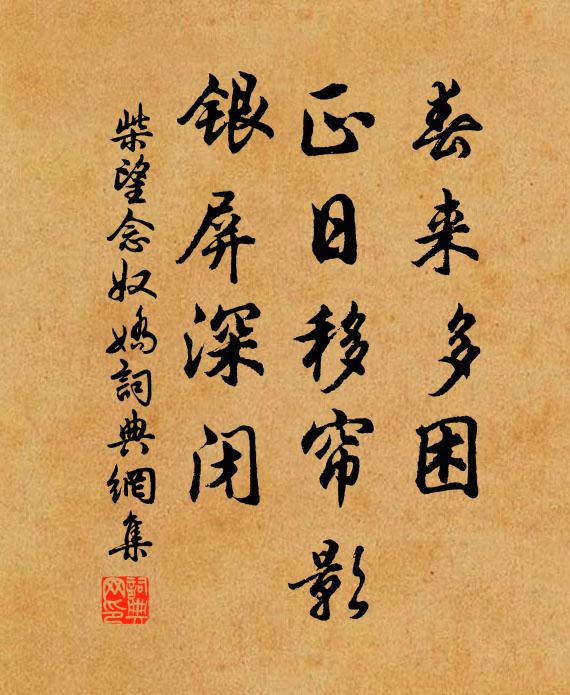 春来多困
正日移帘影
银屏深闭
柴望念奴嬌詞典網集
詞典网印